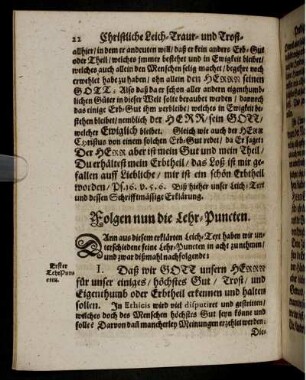 22 Christliche Leich-Traur- und Trost-
allhier/ in dem er andeuten will/ daß er kein anders Erb-Gut
oder Theil/ welches immer bestehet und in Ewigkeit bleibet/
welches auch allein den Menschen selig machet/ begehre noch
erwehlet habe zu haben/ ohn allein den HERRN seinen
GOTT: Also daß da er schon aller andern eigenthumb-
lichen Güter in dieser Welt solte beraubet werden/ dannoch
das einige Erb-Gut ihm verbleibe/ welches in Ewigkeit be-
stehen bleibet/ nemblich der HERR/ sein GOTT/
welcher Ewiglich bleibet. Gleich wie auch der HERR
Christus von einem solchen Erb-Gut redet/ da Er saget:
Der HERR aber ist mein Gut und mein Theil/
Du erhältest mein Erbtheil/ das Loß ist mir ge-
fallen auff Liebliche/ mir ist ein schön Erbtheil
worden/ Ps. 16. v. 5. 6. Biß hieher unser Leich-Text
und dessen Schrifftmässige Erklärung.
Folgen nun die Lehr-Puncten.
Dann aus diesem erklärten Leich-Text haben wir un-
terschiedene feine Lehr-Puncten in acht zu nehmen/
und zwar dißmahl nachfolgende:
Erster
Lehr-Punc
I. Daß wir GOTT unsern HERRN
für unser einiges/ höchstes Gut/ Trost/ und
Eigenthumb oder Erbtheil erkennen und halten
sollen. In Ethicis wird viel disputiret und gestritten/
welches doch des Menschen höchstes Gut seyn könne und
solle? Darvon daß mancherley Meinungen erzehlet werden:
Die-